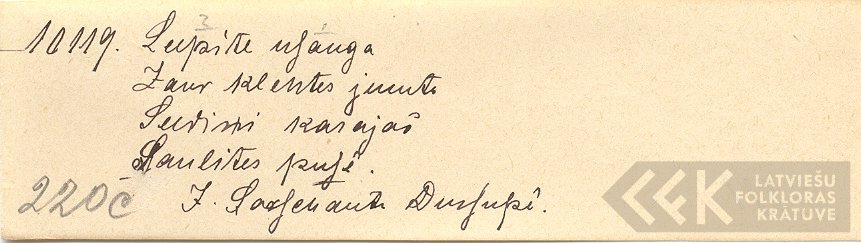 10119. Lupite uſauga
Zaur klehtes jumtu
Sudini karajas
Saulites puſē.
220č J. Dursupē.
LATVIEŠU
FOLKLORAS
KRĀTUVE